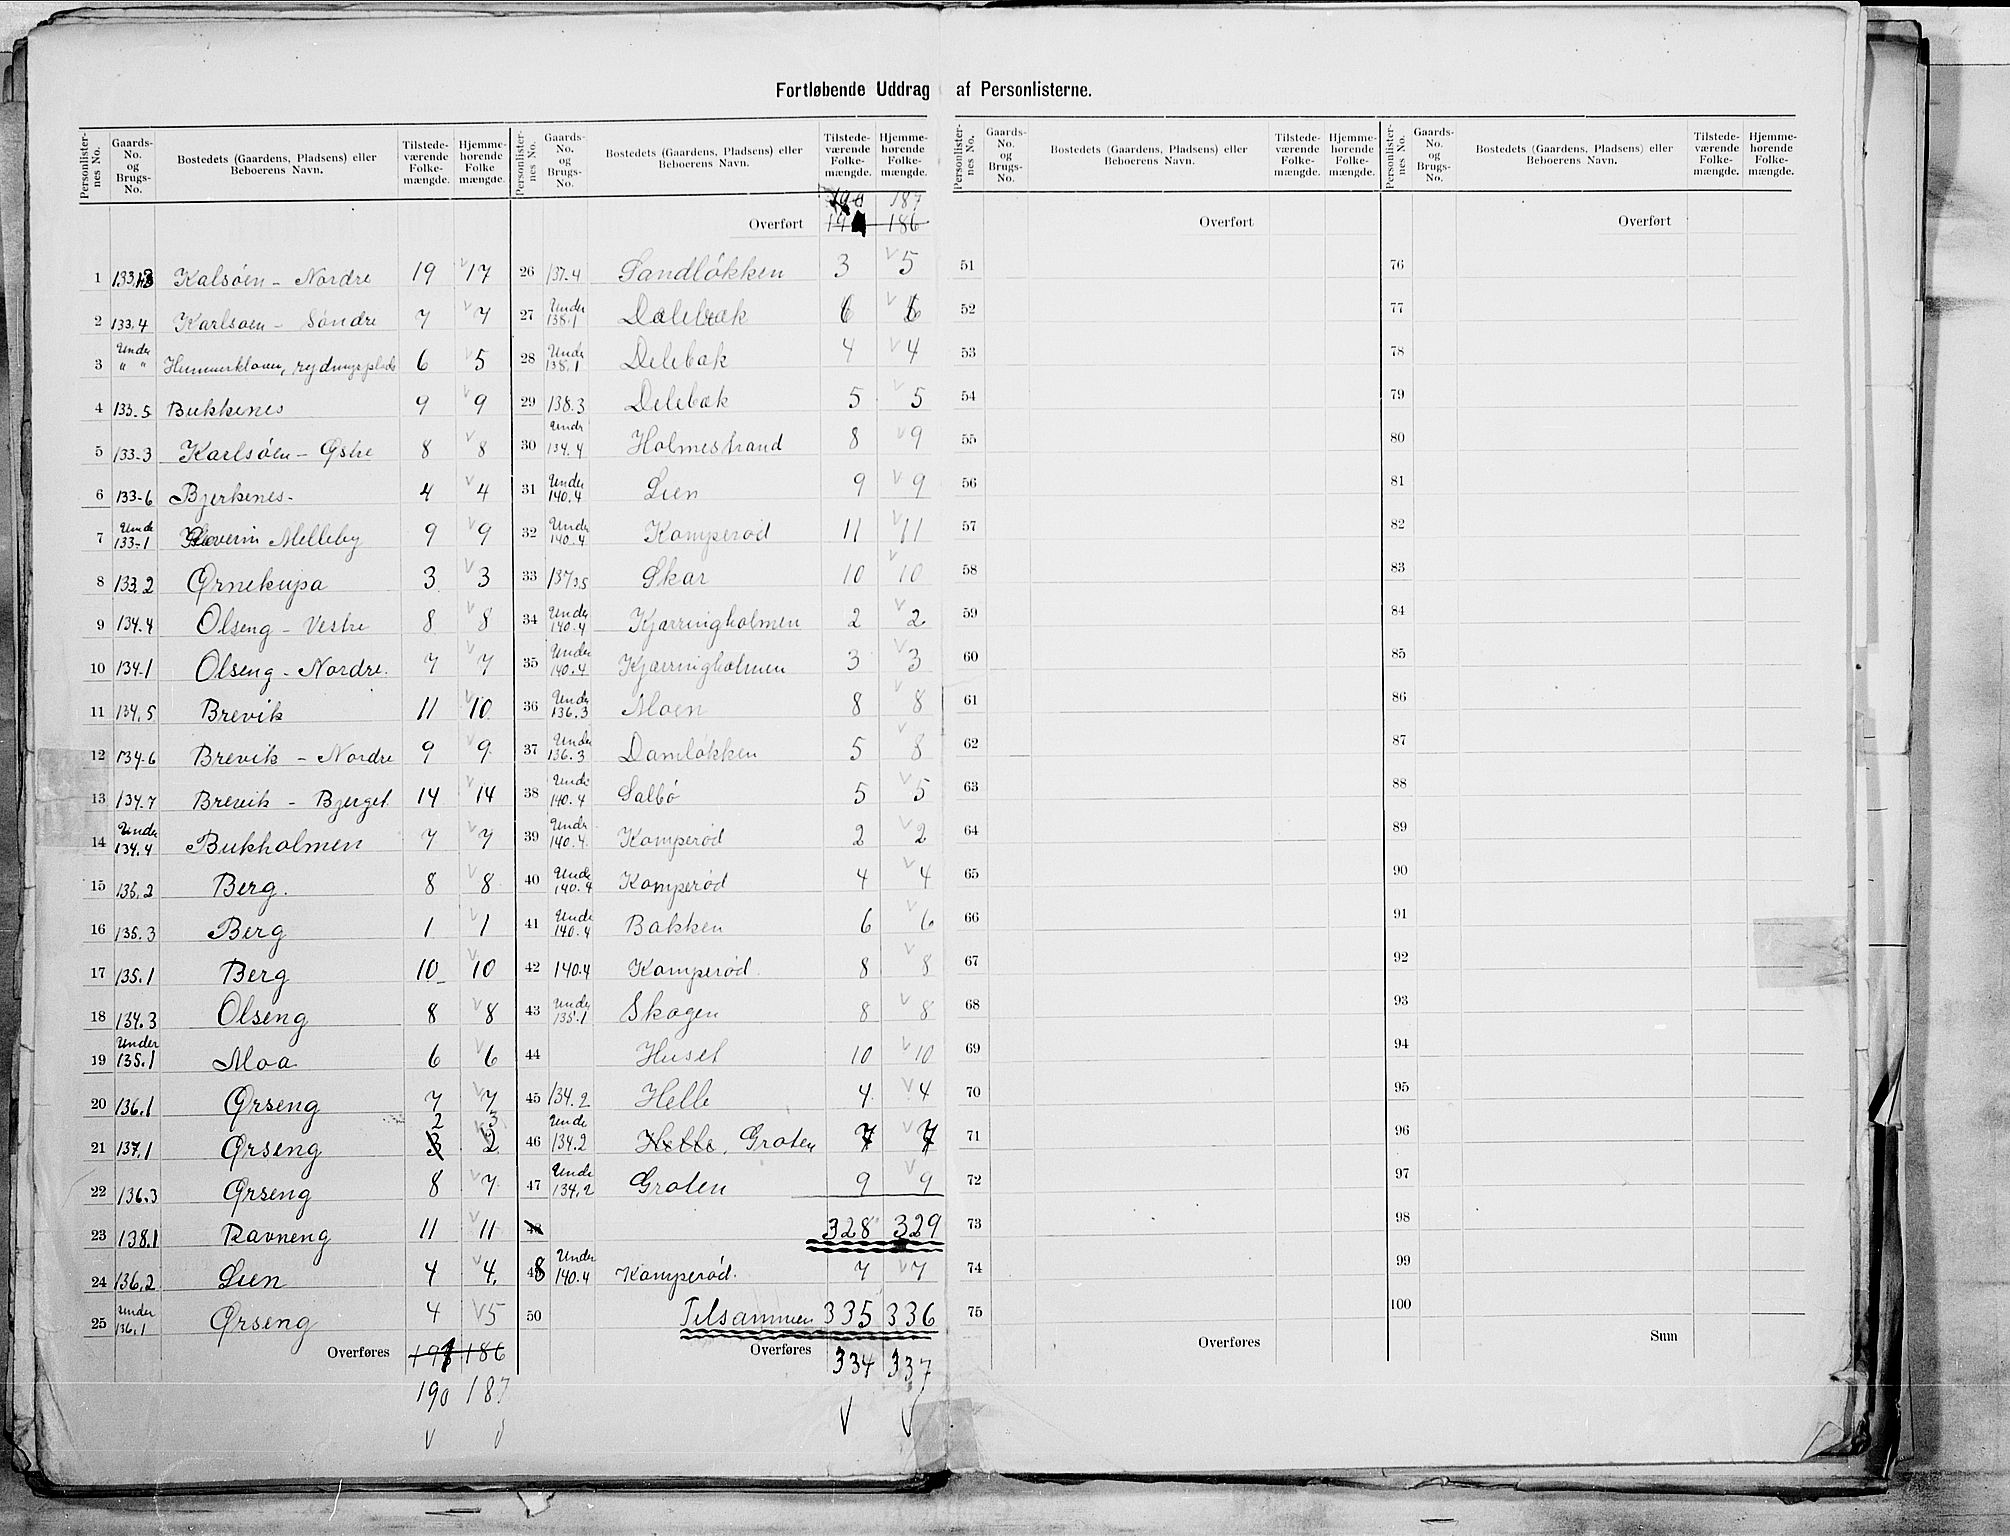 Fortløbende Uddrag af Personlisterne.
Personlister-nes No. Gaards-No. og Brugs-No. Bostedets (Gaardens, Pladsens) eller Beboerens Navn. Tilstede-værende Folke-mængde. Hjemme-hørende Folke-mængde.
1 133,1,8 Kalsøen - Nordre 19 v 17
2 133,4 Karlsøen - Søndre 7 v 7
3 Under " " Hummerkloven, rydningsplads 6 v 5
4 133-5 Bukkenes 9 v 9
5 133-3 Karlsøen - Østre 8 v 8
6 133-6 Bjerkenes- 4 v 4
7 Unde 133-1 Severin Melleby 9 v 9
8 133,2 Ørnekupa 3 v 3
9 134,4 Olseng - Vestre 8 v 8
10 134-1 Olseng - Nordre. 7 v 7
11 134,5 Brevik 11 v 10
12 134-6 Brevik - Nordre 9 v 9
13 134,7 Brevik - Bjerget 14 v 14
14 Under 134,4 Bukholmen 7 v 7
15 135,2 Berg. 8 v 8
16 135.3 Berg 1 v 1
17 135,1 Berg 10 v 10
18 134,3 Olseng 8 v 8
19 Under 135,1 Moa 6 v 6
20 136,1 Ørseng 7 v 7
2 3
21 137,1 Ørseng 3 2
22 136,3 Ørseng 8 v 7
23 138,1 Ravneng 11 v 11
24 136,2 Lien 4 v 4,
25 Under 136,1 Ørseng 4 v 5
Overføres 191 186
190 187
v v
Personlister-nes No. Gaards-No. og Brugs-No. Bostedets (Gaardens, Pladsens) eller Beboerens Navn. Tilstede-værende Folke-mængde. Hjemme-hørende Folke-mængde.
190 187
Overført 191 186
26 137-4 Sandløkken 3 v 5
27 Under 138.1 Dælebæk 6 v 6
28 Under 138,1 Delebæk 4 v 4
29 138.3 Delebæk 5 v 5
30 Undr 134.4 Holmestrand 8 v 9
31 Under 140.4 Lien 9 v 9
32 Under 140.4 Komperød 11 v 11
33 137,5 Skar 10 v 10
34 Under 140.4 Kjærringholmen 2 v 2
35 Under 140.4 Kjærringholmen 3 v 3
36 Under 136.3 Moen 8 v 8
37 Under 136.3 Damløkken 5 v 8
38 Unde 140.4 Salbø 5 v 5
39 Under 140.4. Komperød 2 v 2
40 Unde 140.4 Komperød 4 v 4
41 Unde 140.4 Bakken 6 v 6
42 140.4 Komperød. 8 v 8
43 Under 135.1 Skogen 8 v 8
44 Huset 10 v 10
45 134.2 Helle 4 v 4
46 Unde 134.2 Helle, Groten 7 v 7
47 Unde 134,2 Groten 9 v 9
48 328 329
48 Under 140.4 Komperød. 7 v 7
50 Tilsammen 335 336
Overføres 334 337
v v
Personlister-nes No. Gaards-No. og Brugs-No. Bostedets (Gaardens, Pladsens) eller Beboerens Navn. Tilstede-værende Folke-mængde. Hjemme-hørende Folke-mængde.
Overført
51
52
53
54
55
56
57
58
59
60
61
62
63
64
65
66
67
68
69
70
71
72
73
74
75
Overføres
Personlister-nes No. Gaards-No. og Brugs-No. Bostedets (Gaardens, Pladsens) eller Beboerens Navn. Tilstede-værende Folke-mængde. Hjemme-hørende Folke-mængde.
Overført
76
77
78
79
80
81
82
83
84
85
86
87
88
89
90
91
92
93
94
95
96
97
98
99
100
Sum